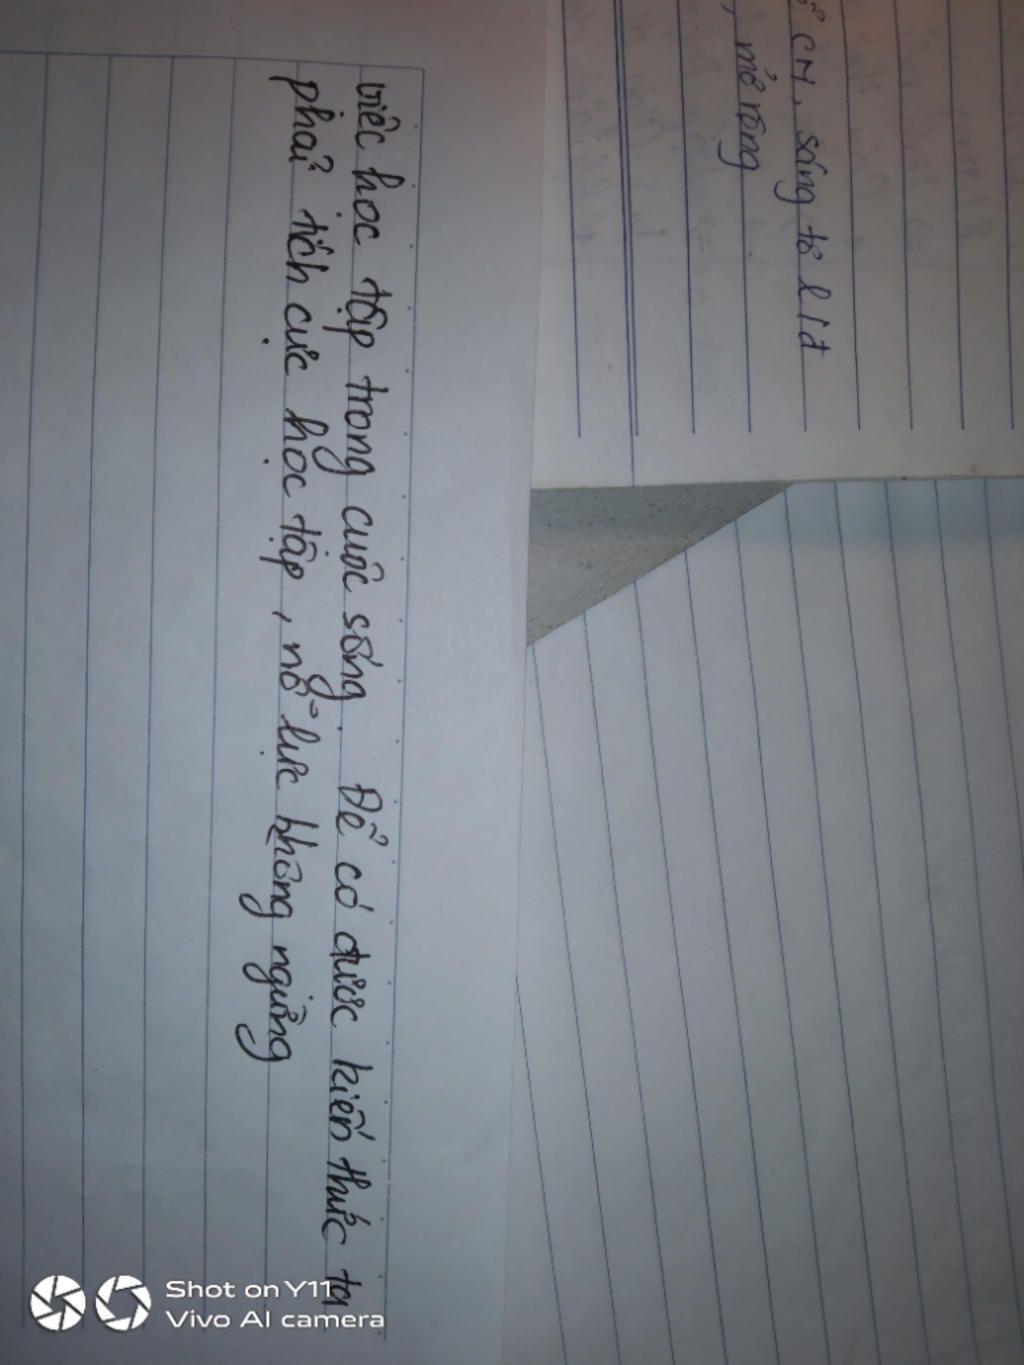 việc học tập trong cuộc sống. Để có được kiến thức ta
phải tích cực học tập, nỗ lực không ngừng
CN, sáng tỏ lđ
, mở rộng
Shot on Y11
Vivo AI camera